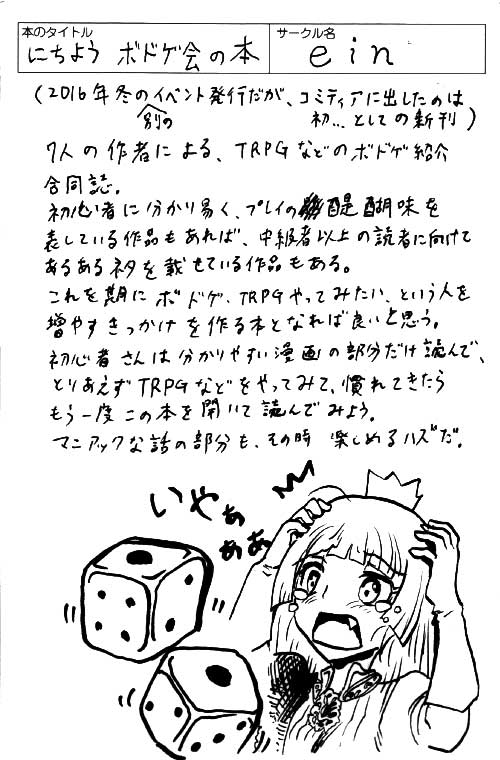 本のタイトル
にちよう ボドゲ会の本
サークル名
ein
(2016年冬の別のイベント発行だが、コミティアに出したのは
初…としての新刊)
7人の作者による、TRPGなどのボドゲ紹介
合同誌。
初心者に分かり易く、プレイの醍醐味を
表している作品もあれば、中級者以上の読者に向けて
あるあるネタを載せている作品もある。
これを期にボドゲ、TRPGやってみたい、という人を
増やすきっかけを作る本となれば良いと思う。
初心者さんは分かりやすい漫画の部分だけ読んで、
とりあえずTRPGなどをやってみて、慣れてきたら
もう一度この本を開いて読んでみよう。
マニアックな話の部分も、その時 楽しめるハズだ。
いやぁ
ぁぁ